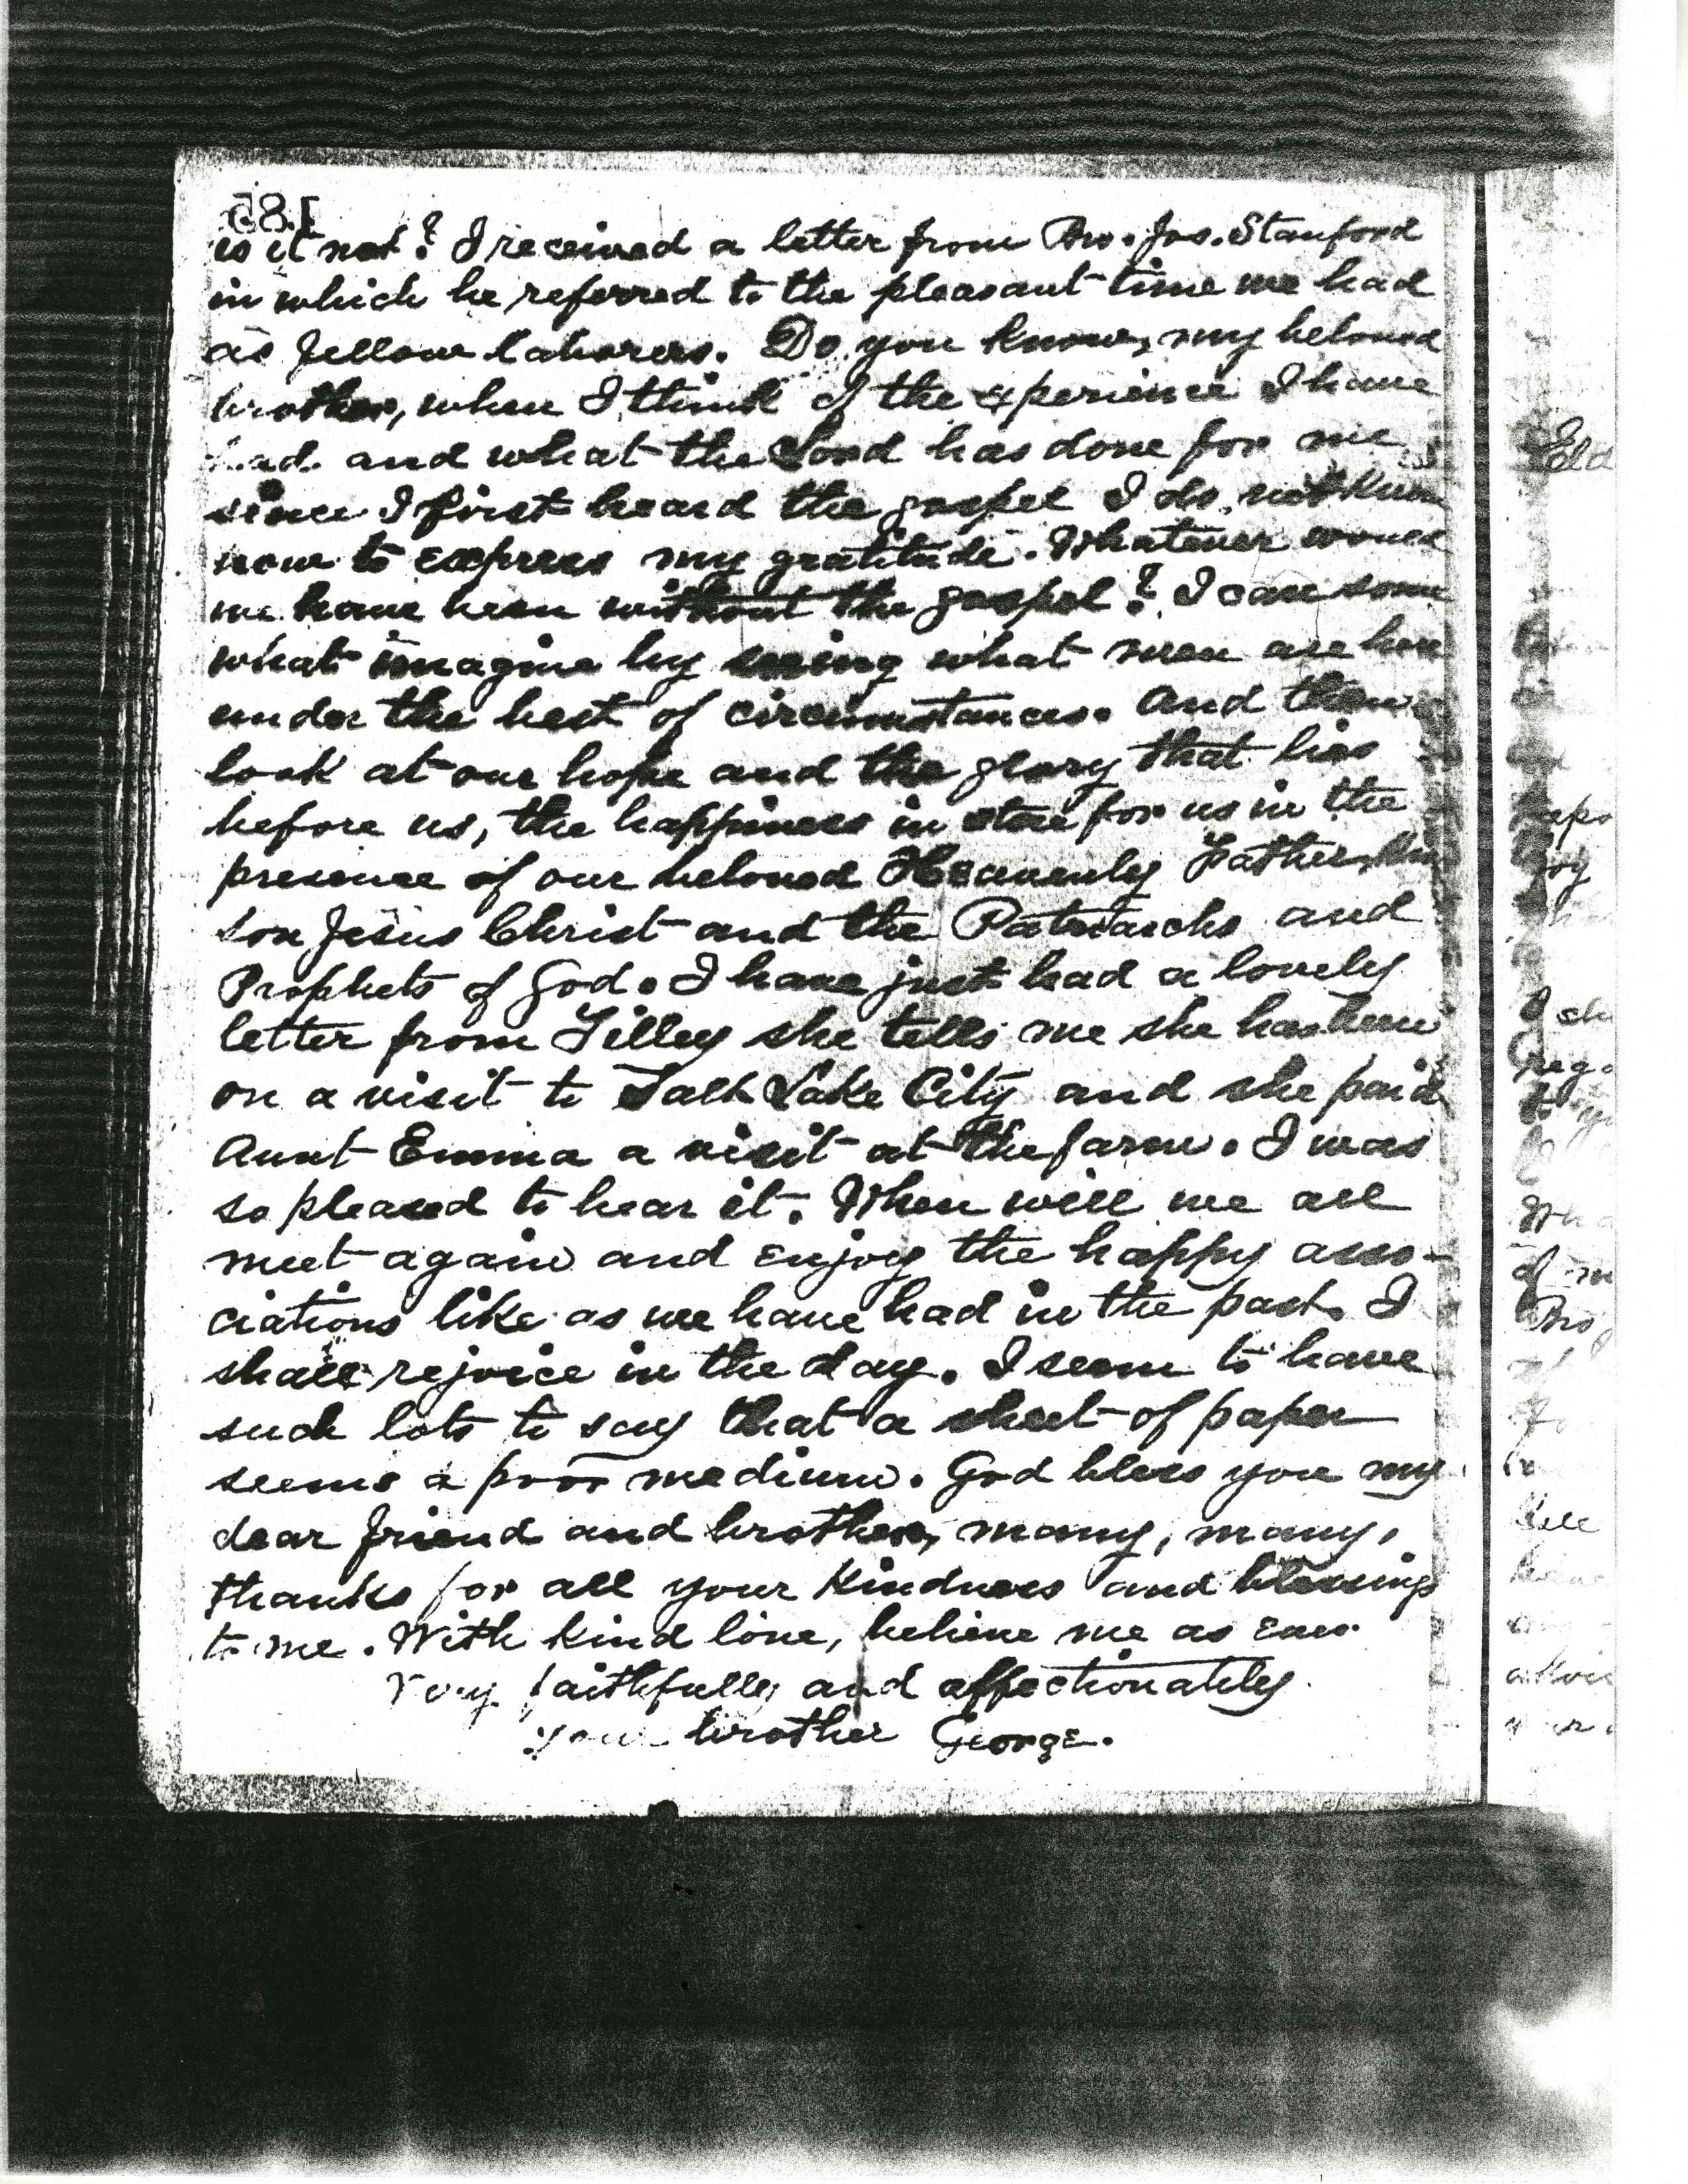 is it not? I received a letter from Bro. Jos. Stanford
in which he referred to the pleasant time we had
as fellow laborers. Do you know, my beloved
brother, when I think of the experience I have
had and what the Lord has done for me
since I first heard the gospel I do not know
how to express my gratitude. Whatever would
we have been without the gospel? I can some
what imagine by seeing what men are here
under the best of circumstances. And then
look at our hope and the glory that lies
before us, the happiness in store for us in the
presence of our beloved Heavenly Father, his
son Jesus Christ and the Patriarchs and
Prophets of God. I have just had a lovely
letter from Lilley she tells me she has been
on a visit to Salt Lake City and she paid
Aunt Emma a visit at the farm. I was
so pleased to hear it. When will we all
meet again and enjoy the happy asso-
ciations like as we have had in the past. I
shall rejoice in the day. I seem to have
such lots to say that a sheet of paper
seems a poor medium. God bless you my
dear friend and brother, many, many,
thanks for all your kindness and blessings
to me. With kind love, believe me as ever
Very faithfully and affectionately
Your brother George.